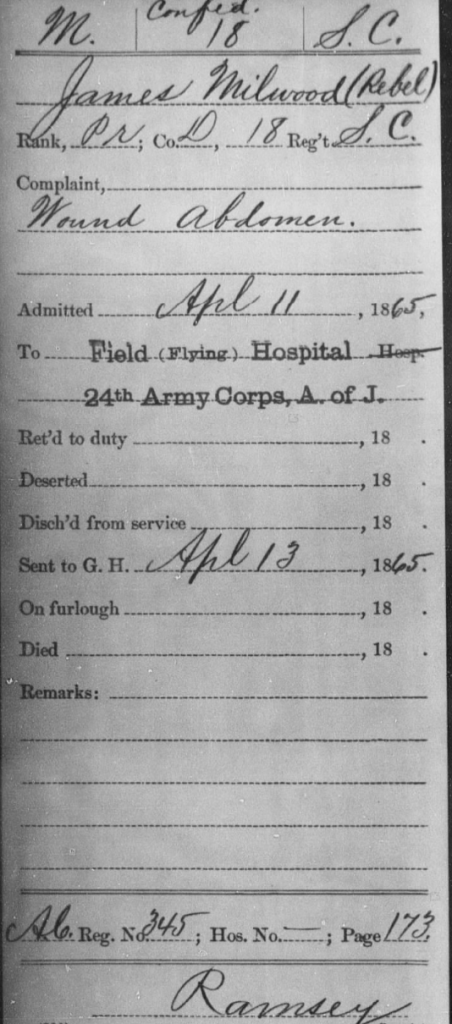 M. Confed. 18 S. C.
James Milwood (Rebel)
Rank, Pr; Co. D, 18 Reg't S. C.
Complaint,
Wound Abdomen.
Admitted Apl 11, 1865,
To Field (Flying) Hospital Hosp.
24th Army Corps, A. of J.
Ret'd to duty , 18 .
Deserted , 18 .
Disch'd from service , 18 .
Sent to G. H. Apl 13, 1865.
On furlough , 18 .
Died , 18 .
Remarks:
Reg. No. 345; Hos. No. —; Page 173.
Ramsey